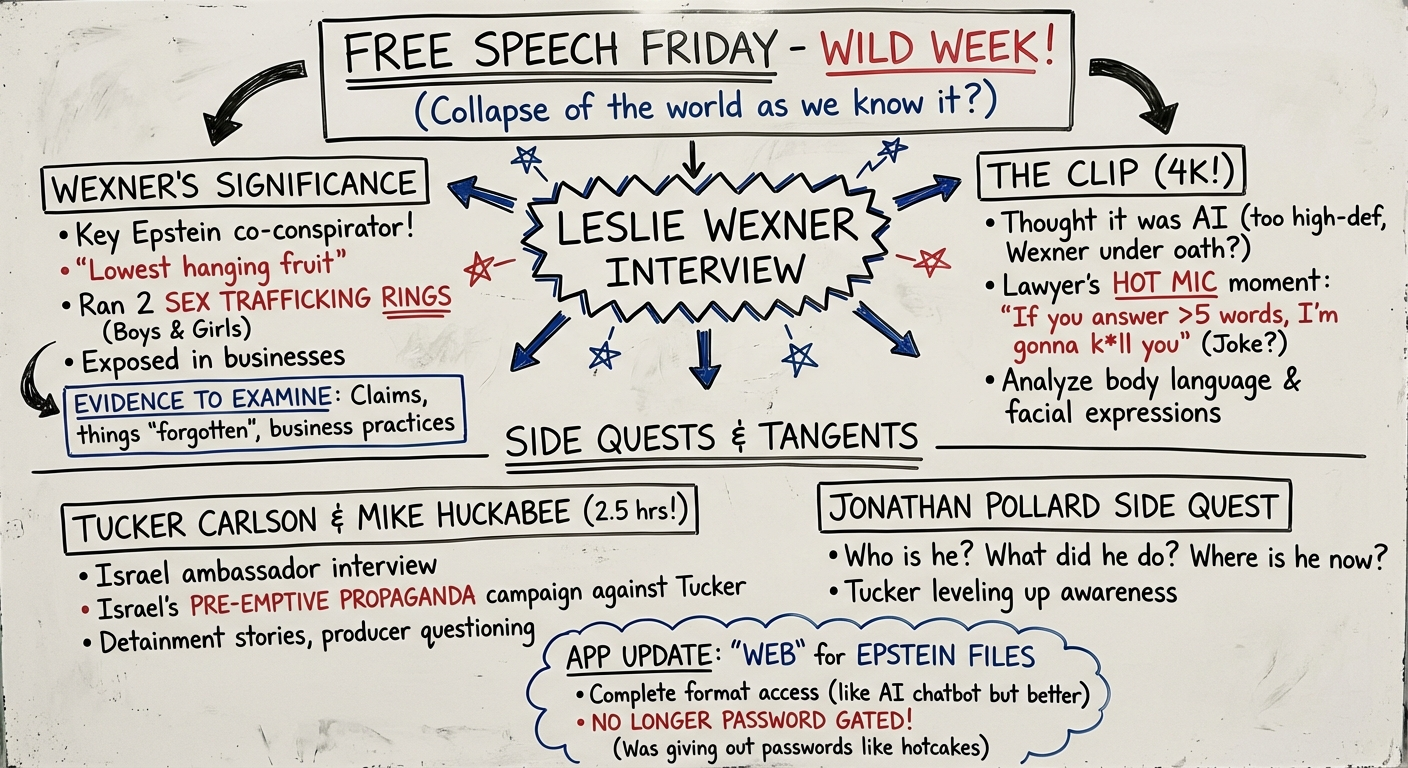 FREE SPEECH FRIDAY - WILD WEEK!
(Collapse of the world as we know it?)
WEXNER'S SIGNIFICANCE
• Key Epstein co-conspirator!
• "Lowest hanging fruit"
• Ran 2 SEX TRAFFICKING RINGS
(Boys & Girls)
• Exposed in businesses
EVIDENCE TO EXAMINE: Claims,
things "forgotten", business practices
LESLIE WEXNER
INTERVIEW
THE CLIP (4K!)
• Thought it was AI (too high-def,
Wexner under oath?)
• Lawyer's HOT MIC moment:
"If you answer >5 words, I'm
gonna k*ll you" (Joke?)
• Analyze body language &
facial expressions
SIDE QUESTS & TANGENTS
TUCKER CARLSON & MIKE HUCKABEE (2.5 hrs!)
• Israel ambassador interview
• Israel's PRE-EMPTIVE PROPAGANDA campaign against Tucker
• Detainment stories, producer questioning
JONATHAN POLLARD SIDE QUEST
• Who is he? What did he do? Where is he now?
• Tucker leveling up awareness
APP UPDATE: "WEB" for EPSTEIN FILES
• Complete format access (like AI chatbot but better)
• NO LONGER PASSWORD GATED!
(Was giving out passwords like hotcakes)